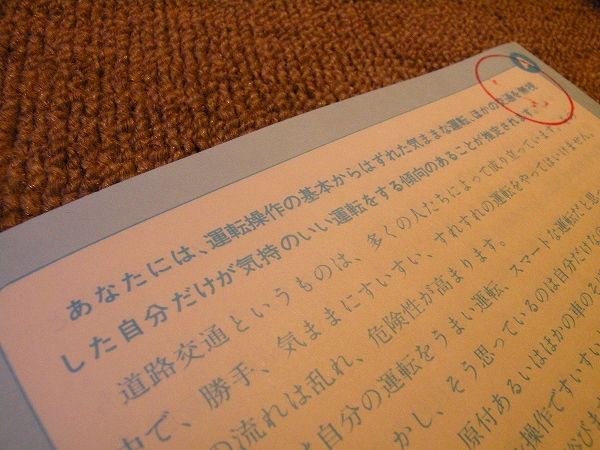 A
あなたには、運転操作の基本からはずれた気ままな運転、ほかの交通を無視
した自分だけが気持のいい運転をする傾向のあることが推定され
道路交通というものは、多くの人たちによって成り立っています。
中で、勝手、気ままにすいすい、すれすれの運転をやってはいけません。
の流れは乱れ、危険性が高まります。
と自分の運転をうまい運転、スマートな運転だと思っ
かし、そう思っているのは自分だけなの
原付あるいはほかの車のそば
操作ですいすい